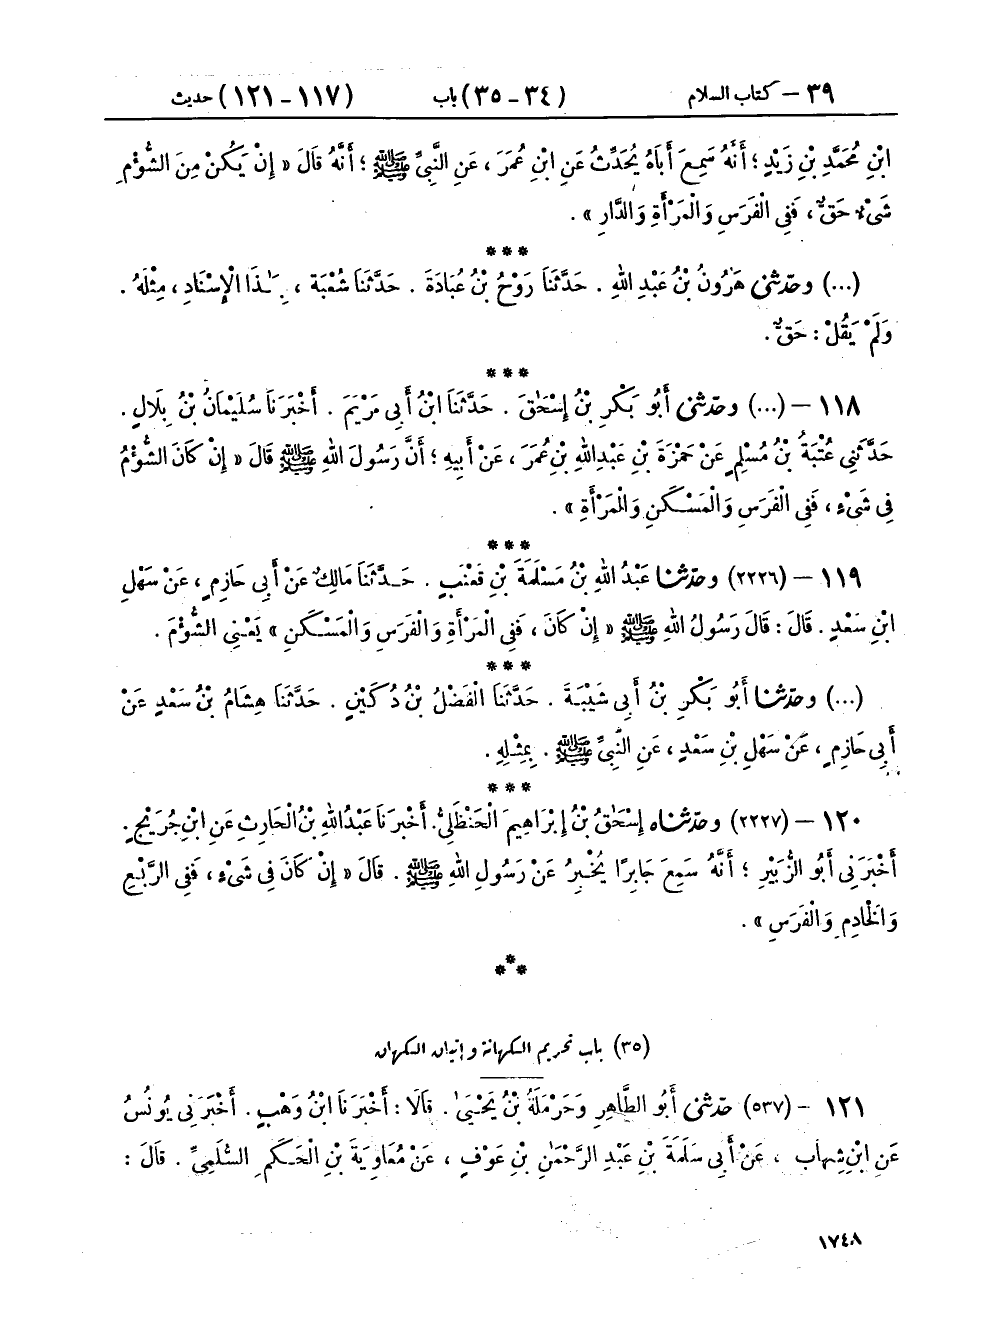 ٣٩ – كتاب السلام (٣٤ – ٣٥) باب (١١٧ – ١٢١) حديث
ابْنِ مُحَمَّدِ بْنِ زَيْدٍ ؛ أَنَّهُ سَمِعَ أَبَاهُ يُحَدِّثُ عَنِ ابْنِ عُمَرَ ، عَنِ النَّبِيِّ ﷺ ؛ أَنَّهُ قَالَ « إِنْ يَكُنْ مِنَ الشُّؤْمِ
شَيْءٌ حَقٌّ ، فَفِي الْفَرَسِ وَالْمَرْأَةِ وَالدَّارِ » .
***
(...) وحدّثني هَٰرُونُ بْنُ عَبْدِ اللهِ . حَدَّثَنَا رَوْحُ بْنُ عُبَادَةَ . حَدَّثَنَا شُعْبَةُ ، بِهَٰذَا الْإِسْنَادِ ، مِثْلَهُ .
وَلَمْ يَقُلْ : حَقٌّ .
***
١١٨ – (...) وحدّثني أَبُو بَكْرِ بْنُ إِسْحَٰقَ . حَدَّثَنَا ابْنُ أَبِي مَرْيَمَ . أَخْبَرَنَا سُلَيْمَانُ بْنُ بِلَالٍ .
حَدَّثَنِي عُتْبَةُ بْنُ مُسْلِمٍ عَنْ حَمْزَةَ بْنِ عَبْدِ اللهِ بْنِ عُمَرَ ، عَنْ أَبِيهِ ؛ أَنَّ رَسُولَ اللهِ ﷺ قَالَ « إِنْ كَانَ الشُّؤْمُ
فِي شَيْءٍ ، فَفِي الْفَرَسِ وَالْمَسْكَنِ وَالْمَرْأَةِ » .
***
١١٩ – (٢٢٢٦) وحدّثنا عَبْدُ اللهِ بْنُ مَسْلَمَةَ بْنِ قَعْنَبٍ . حَدَّثَنَا مَالِكٌ عَنْ أَبِي حَازِمٍ ، عَنْ سَهْلِ
ابْنِ سَعْدٍ . قَالَ : قَالَ رَسُولُ اللهِ ﷺ « إِنْ كَانَ ، فَفِي الْمَرْأَةِ وَالْفَرَسِ وَالْمَسْكَنِ » يَعْنِي الشُّؤْمَ .
***
(...) وحدّثنا أَبُو بَكْرِ بْنُ أَبِي شَيْبَةَ . حَدَّثَنَا الْفَضْلُ بْنُ دُكَيْنٍ . حَدَّثَنَا هِشَامُ بْنُ سَعْدٍ عَنْ
أَبِي حَازِمٍ ، عَنْ سَهْلِ بْنِ سَعْدٍ ، عَنِ النَّبِيِّ ﷺ . بِمِثْلِهِ .
***
١٢٠ – (٢٢٢٧) وحدّثناه إِسْحَٰقُ بْنُ إِبْرَاهِيمَ الْحَنْظَلِيُّ. أَخْبَرَنَا عَبْدُ اللهِ بْنُ الْحَارِثِ عَنِ ابْنِ جُرَيْجٍ .
أَخْبَرَنِي أَبُو الزُّبَيْرِ ؛ أَنَّهُ سَمِعَ جَابِرًا يُخْبِرُ عَنْ رَسُولِ اللهِ ﷺ . قَالَ « إِنْ كَانَ فِي شَيْءٍ ، فَفِي الرَّبْعِ
وَالْخَادِمِ وَالْفَرَسِ » .
***
(٣٥) باب تحريم الكهانة وإتيان الكهان
١٢١ – (٥٣٧) حدّثني أَبُو الطَّاهِرِ وَحَرْمَلَةُ بْنُ يَحْيَىٰ . قَالَا : أَخْبَرَنَا ابْنُ وَهْبٍ . أَخْبَرَنِي يُونُسُ
عَنِ ابْنِ شِهَابٍ ، عَنْ أَبِي سَلَمَةَ بْنِ عَبْدِ الرَّحْمَٰنِ بْنِ عَوْفٍ ، عَنْ مُعَاوِيَةَ بْنِ الْحَكَمِ السُّلَمِيِّ . قَالَ :
١٧٤٨